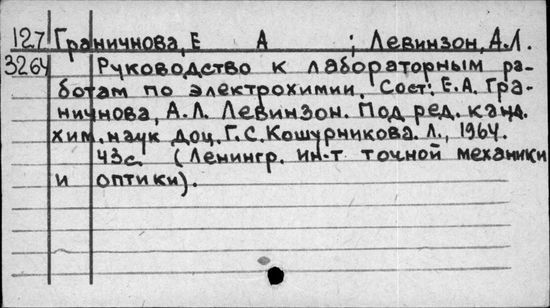 127 Граничнова, Е А ; Левинзон, А.Л.
3264 Руководство к лабораторным ра-
ботам по электрохимии. Сост: Е.А. Гра-
ничнова, А.Л. Левинзон. Под ред. канд.
хим. наук доц. Г.С. Кошурникова. Л., 1964.
43с. (Ленингр. ин-т точной механики
и оптики).